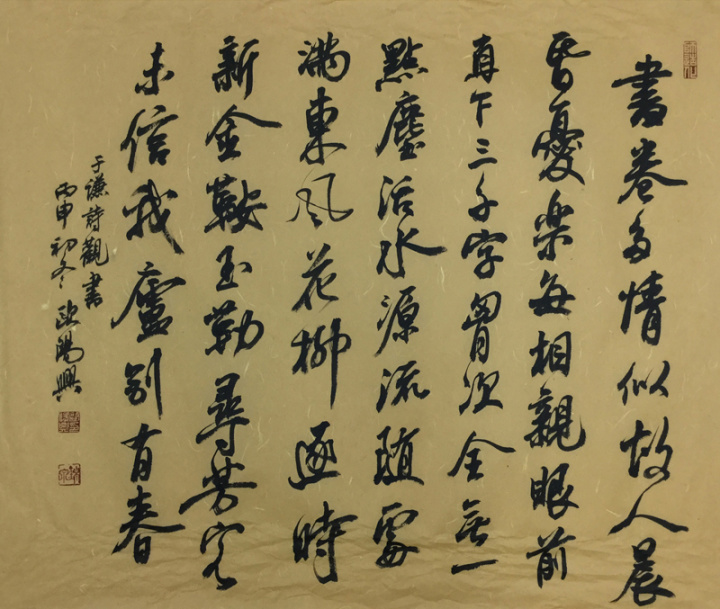 書卷多情似故人晨
昏憂樂每相親眼前
直下三千字胷次全無一
點塵活水源流隨處
滿東風花柳逐時
新金鞍玉勒尋芳客
未信我廬別有春
于謙詩觀書
丙申初冬歐陽興